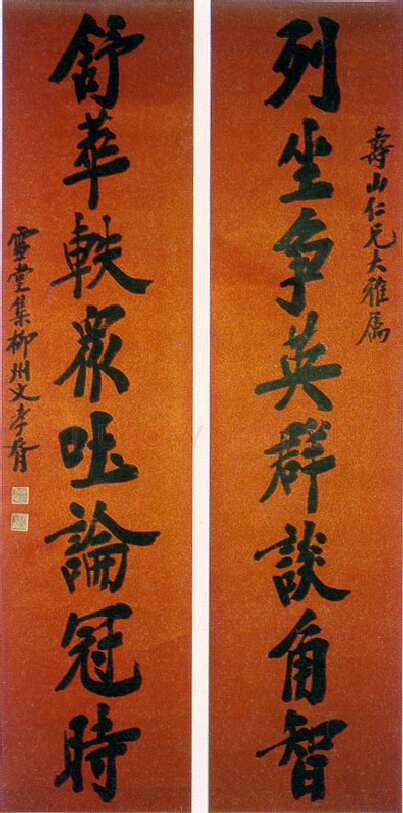 壽山仁兄大雅属
列坐争英群談角智
舒華軼眾吐論冠時
靈堂集柳州文孝胥